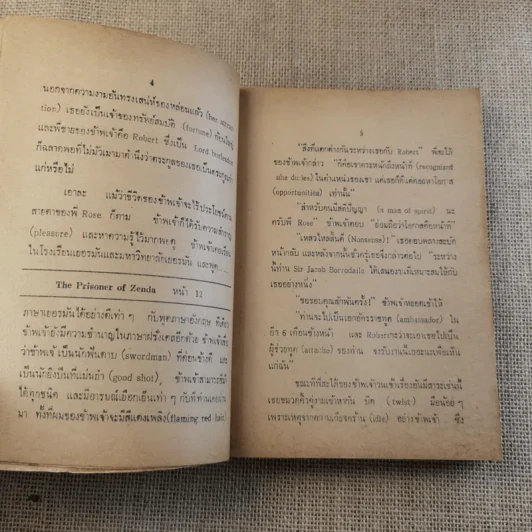 4
นอกจากความงามอันทรงเสน่ห์ของหล่อนแล้ว (her attrac-
tion) เธอยังเป็นเจ้าของทรัพย์สมบัติ (fortune) ก้อนใหญ่
และพี่ชายของข้าพเจ้าคือ Robert ซึ่งเป็น Lord
ก็ฉลาดพอที่ไม่นำมาคำนึงว่าตระกูลของเธอเป็นตระกูลเก่า
แก่หรือไม่
เอาละ แม้ว่าชีวิตของข้าพเจ้าจะไร้ประโยชน์ใน
สายตาของพี่ Rose ก็ตาม ข้าพเจ้าก็ได้รับความสำราญ
(pleasure) และหาความรู้ไว้มากพอดู ข้าพเจ้าเคยเรียน
ในโรงเรียนเยอรมันและมหาวิทยาลัยเยอรมัน และพูด
The Prisoner of Zenda หน้า 12
ภาษาเยอรมันได้อย่างดีเท่า ๆ กับพูดภาษาอังกฤษ
ข้าพเจ้ายังมีความชำนาญในภาษาฝรั่งเศสอีกด้วย ข้าพเจ้าเชื่อ
ว่าข้าพเจ้าเป็นนักฟันดาบ (swordman) ที่ค่อนข้างดี และ
เป็นนักยิงปืนที่แม่นยำ (good shot), ข้าพเจ้าสามารถขี่ม้า
ได้ทุกชนิด และมีอารมณ์เยือกเย็นเท่า ๆ กับที่ท่านเคยอ่าน
มา ทั้งที่ผมของข้าพเจ้าจะมีสีแดงเพลิง (flaming red hair)
5
"สิ่งที่แตกต่างกันระหว่างเธอกับ Robert" พี่สะใภ้
ของข้าพเจ้ากล่าว "ก็คือเขาตระหนักถึงหน้าที่ (recognizes
his duties) ในตำแหน่งของเขา แต่เธอก็ดีแต่คอยหาโอกาส
(opportunities) เท่านั้น"
"สำหรับคนมีสติปัญญา (a man of spirit) นะ
ครับพี่ Rose" ข้าพเจ้าตอบ "ย่อมถือว่าโอกาสคือหน้าที่"
"เหลวไหลสิ้นดี (Nonsense)!" เธอตอบพลางสะบัด
หน้ากลับ และหลังจากนั้นชั่วครู่เธอจึงกล่าวต่อไป "ระหว่าง
นี้ท่าน Sir Jacob Borrodaile ได้เสนองานที่เหมาะสมให้กับ
เธออย่างหนึ่ง"
"ขอขอบคุณสักพันครั้ง!" ข้าพเจ้าหยอดเข้าให้
"ท่านจะไปเป็นเอกอัครราชทูต (ambassador) ใน
อีก 6 เดือนข้างหน้า และ Robert กะว่าจะเอาเธอไปเป็น
ผู้ช่วยทูต (attache) ของท่าน จงรับงานนี้เถอะนะเพื่อเห็น
แก่ฉัน"
ขณะที่พี่สะใภ้ของข้าพเจ้าวนเข้าเรื่องอันมีสาระเช่นนี้
เธอขมวดคิ้วคู่งามเข้าหากัน บิด (twist) มือน้อย ๆ
เพราะเหตุจากความเกียจคร้าน (idle) อย่างข้าพเจ้า ซึ่ง